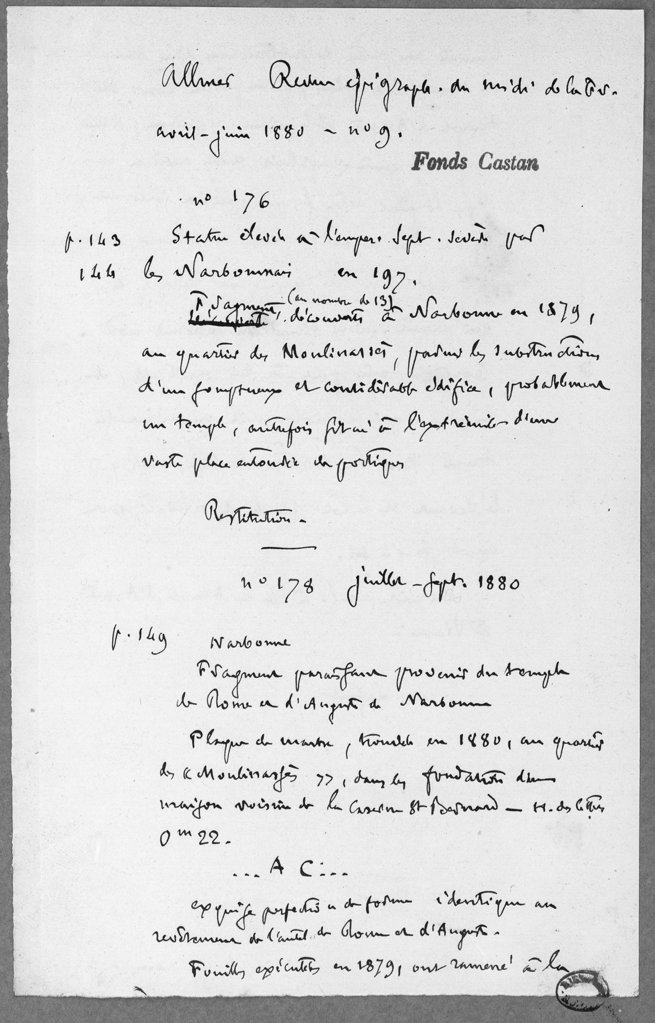 Allmer Revue épigraph. du midi de la Fr.
avril-juin 1880 - no 9.
Fonds Castan
no 176
p. 143 Statue élevée à l'emper. Sept. Sévère par
144 les Narbonnais en 197.
Fragments (au nombre de 13) découverts à Narbonne en 1879,
au quartier des Moulinassés, parmi les substructions
d'un somptueux et considérable édifice, probablement
un temple, autrefois situé à l'extrémité d'une
vaste place entourée de portiques
Restitution.
no 178 juillet - Sept. 1880
p. 149 Narbonne
Fragment paraissant provenir du temple
de Rome et d'Auguste de Narbonne
Plaque de marbre, trouvée en 1880, au quartier
des « Moulinassés », dans les fondations d'une
maison voisine de la Caserne St Bernard — H. des lettres
0m 22.
... A C ...
exquise perfection de forme identique au
revêtement de l'autel de Rome et d'Auguste.
Fouilles exécutées en 1879, ont ramené à la